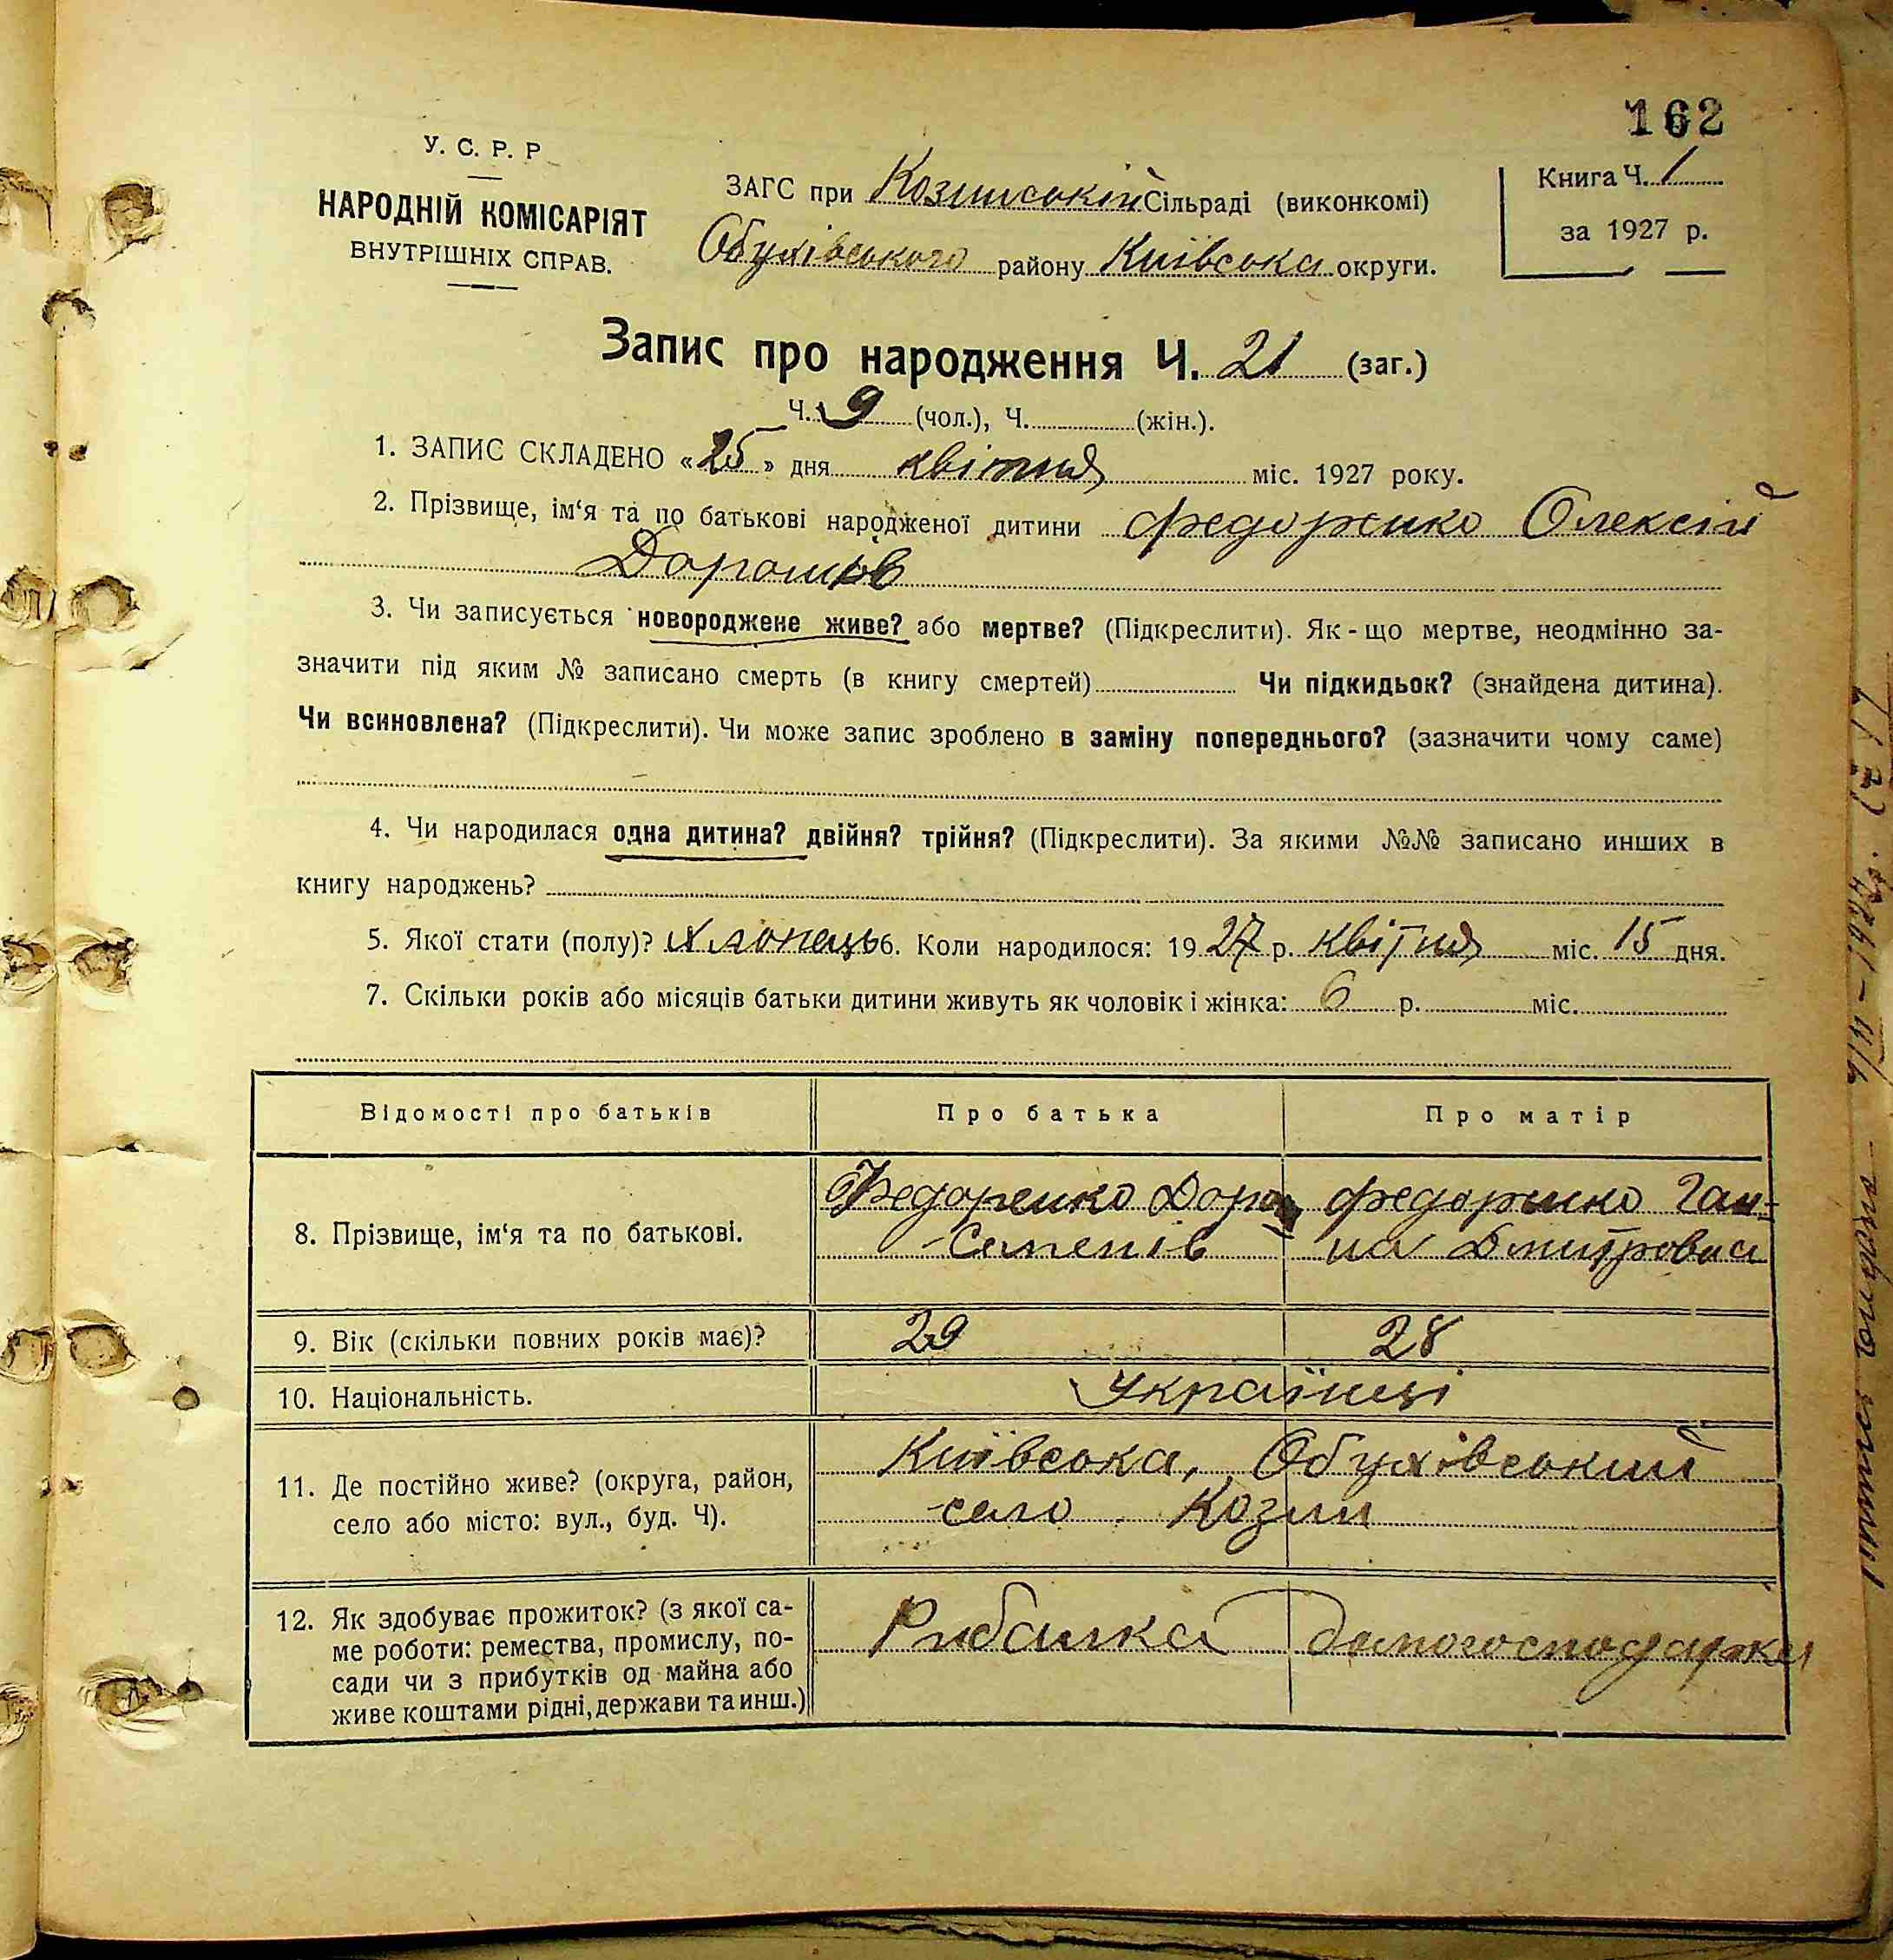 162
У. С. Р. Р
НАРОДНІЙ КОМІСАРІЯТ
ВНУТРІШНІХ СПРАВ.
ЗАГС при Козинській Сільраді (виконкомі)
Обухівського району Київська округи.
Книга Ч. 1
за 1927 р.
Запис про народження Ч. 21 (заг.)
Ч. 9 (чол.), Ч. (жін.).
1. ЗАПИС СКЛАДЕНО «25» дня квітня міс. 1927 року.
2. Прізвище, ім‘я та по батькові народженої дитини Федоренко Олексій
Дорошів
3. Чи записується новороджене живе? або мертве? (Підкреслити). Як-що мертве, неодмінно за-
значити під яким № записано смерть (в книгу смертей) Чи підкидьок? (знайдена дитина).
Чи всиновлена? (Підкреслити). Чи може запис зроблено в заміну попереднього? (зазначити чому саме)
4. Чи народилася одна дитина? двійня? трійня? (Підкреслити). За якими №№ записано инших в
книгу народжень?
5. Якої стати (полу)? Хлопець 6. Коли народилося: 1927 р. квітня міс. 15 дня.
7. Скільки років або місяців батьки дитини живуть як чоловік і жінка: 6 р. міс.
Відомості про батьків Про батька Про матір
8. Прізвище, ім‘я та по батькові.
Федоренко Дорош
Семенів
Федоренко Ган-
на Дмитровна
9. Вік (скільки повних років має)? 29 28
10. Національність. Українці
11. Де постійно живе? (округа, район,
село або місто: вул., буд. Ч).
Київська, Обухівський
село Козин
12. Як здобуває прожиток? (з якої са-
ме роботи: ремества, промислу, по-
сади чи з прибутків од майна або
живе коштами рідні, держави та инш.)
Рибалка
домогосподарка